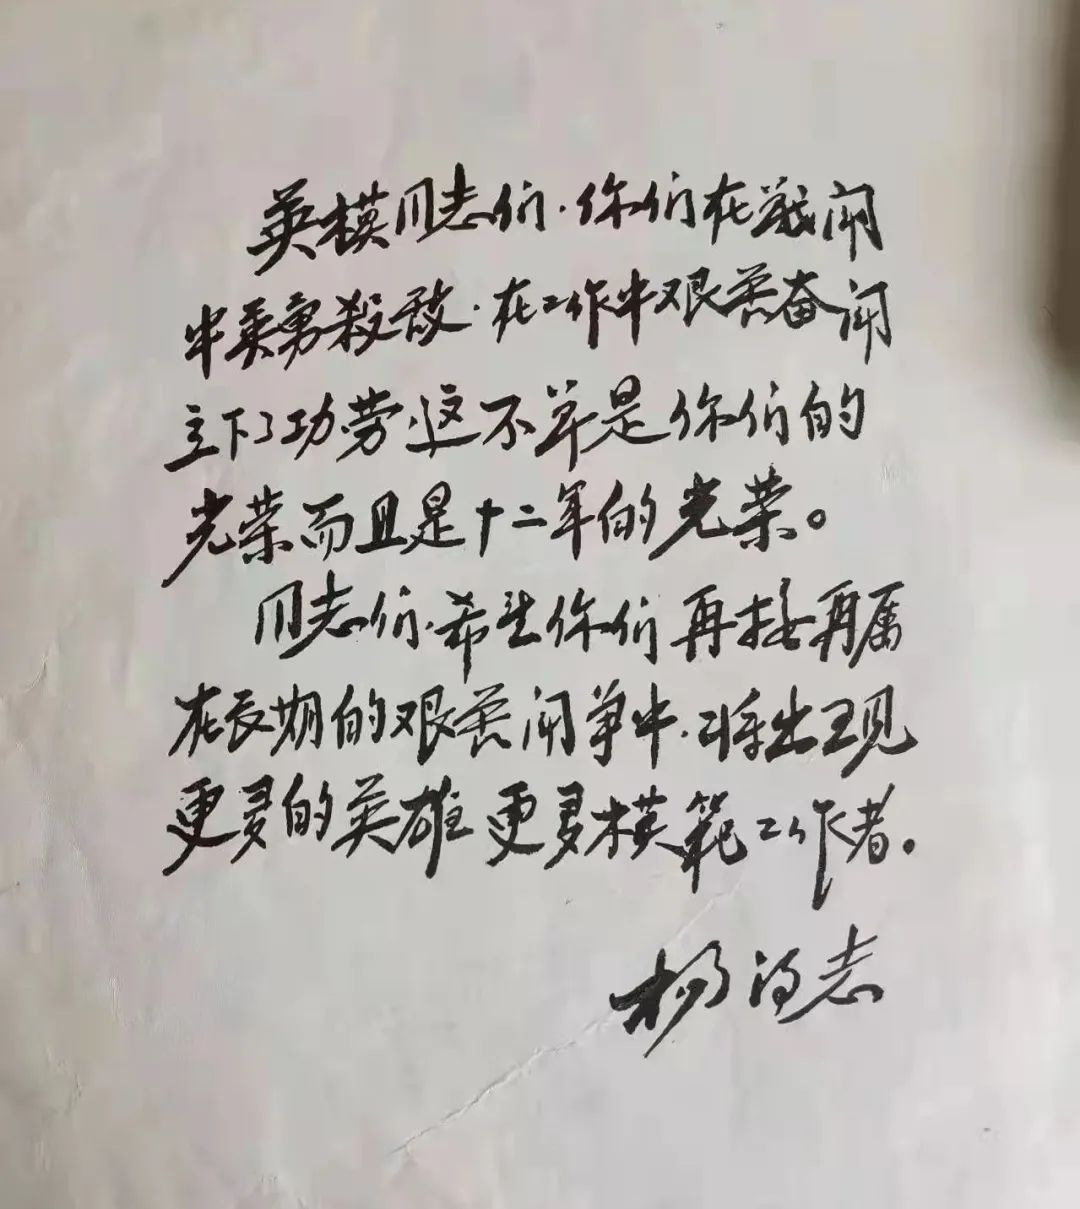 英模同志们.你们在戰闘
中英勇殺敌.在工作中艰苦奋闘
立下了功劳.这不单是你们的
光荣而且是十二年的光荣。
同志们.希望你们再接再厲
在长期的艰苦闘争中.将出现
更多的英雄更多模範工作者.
杨得志